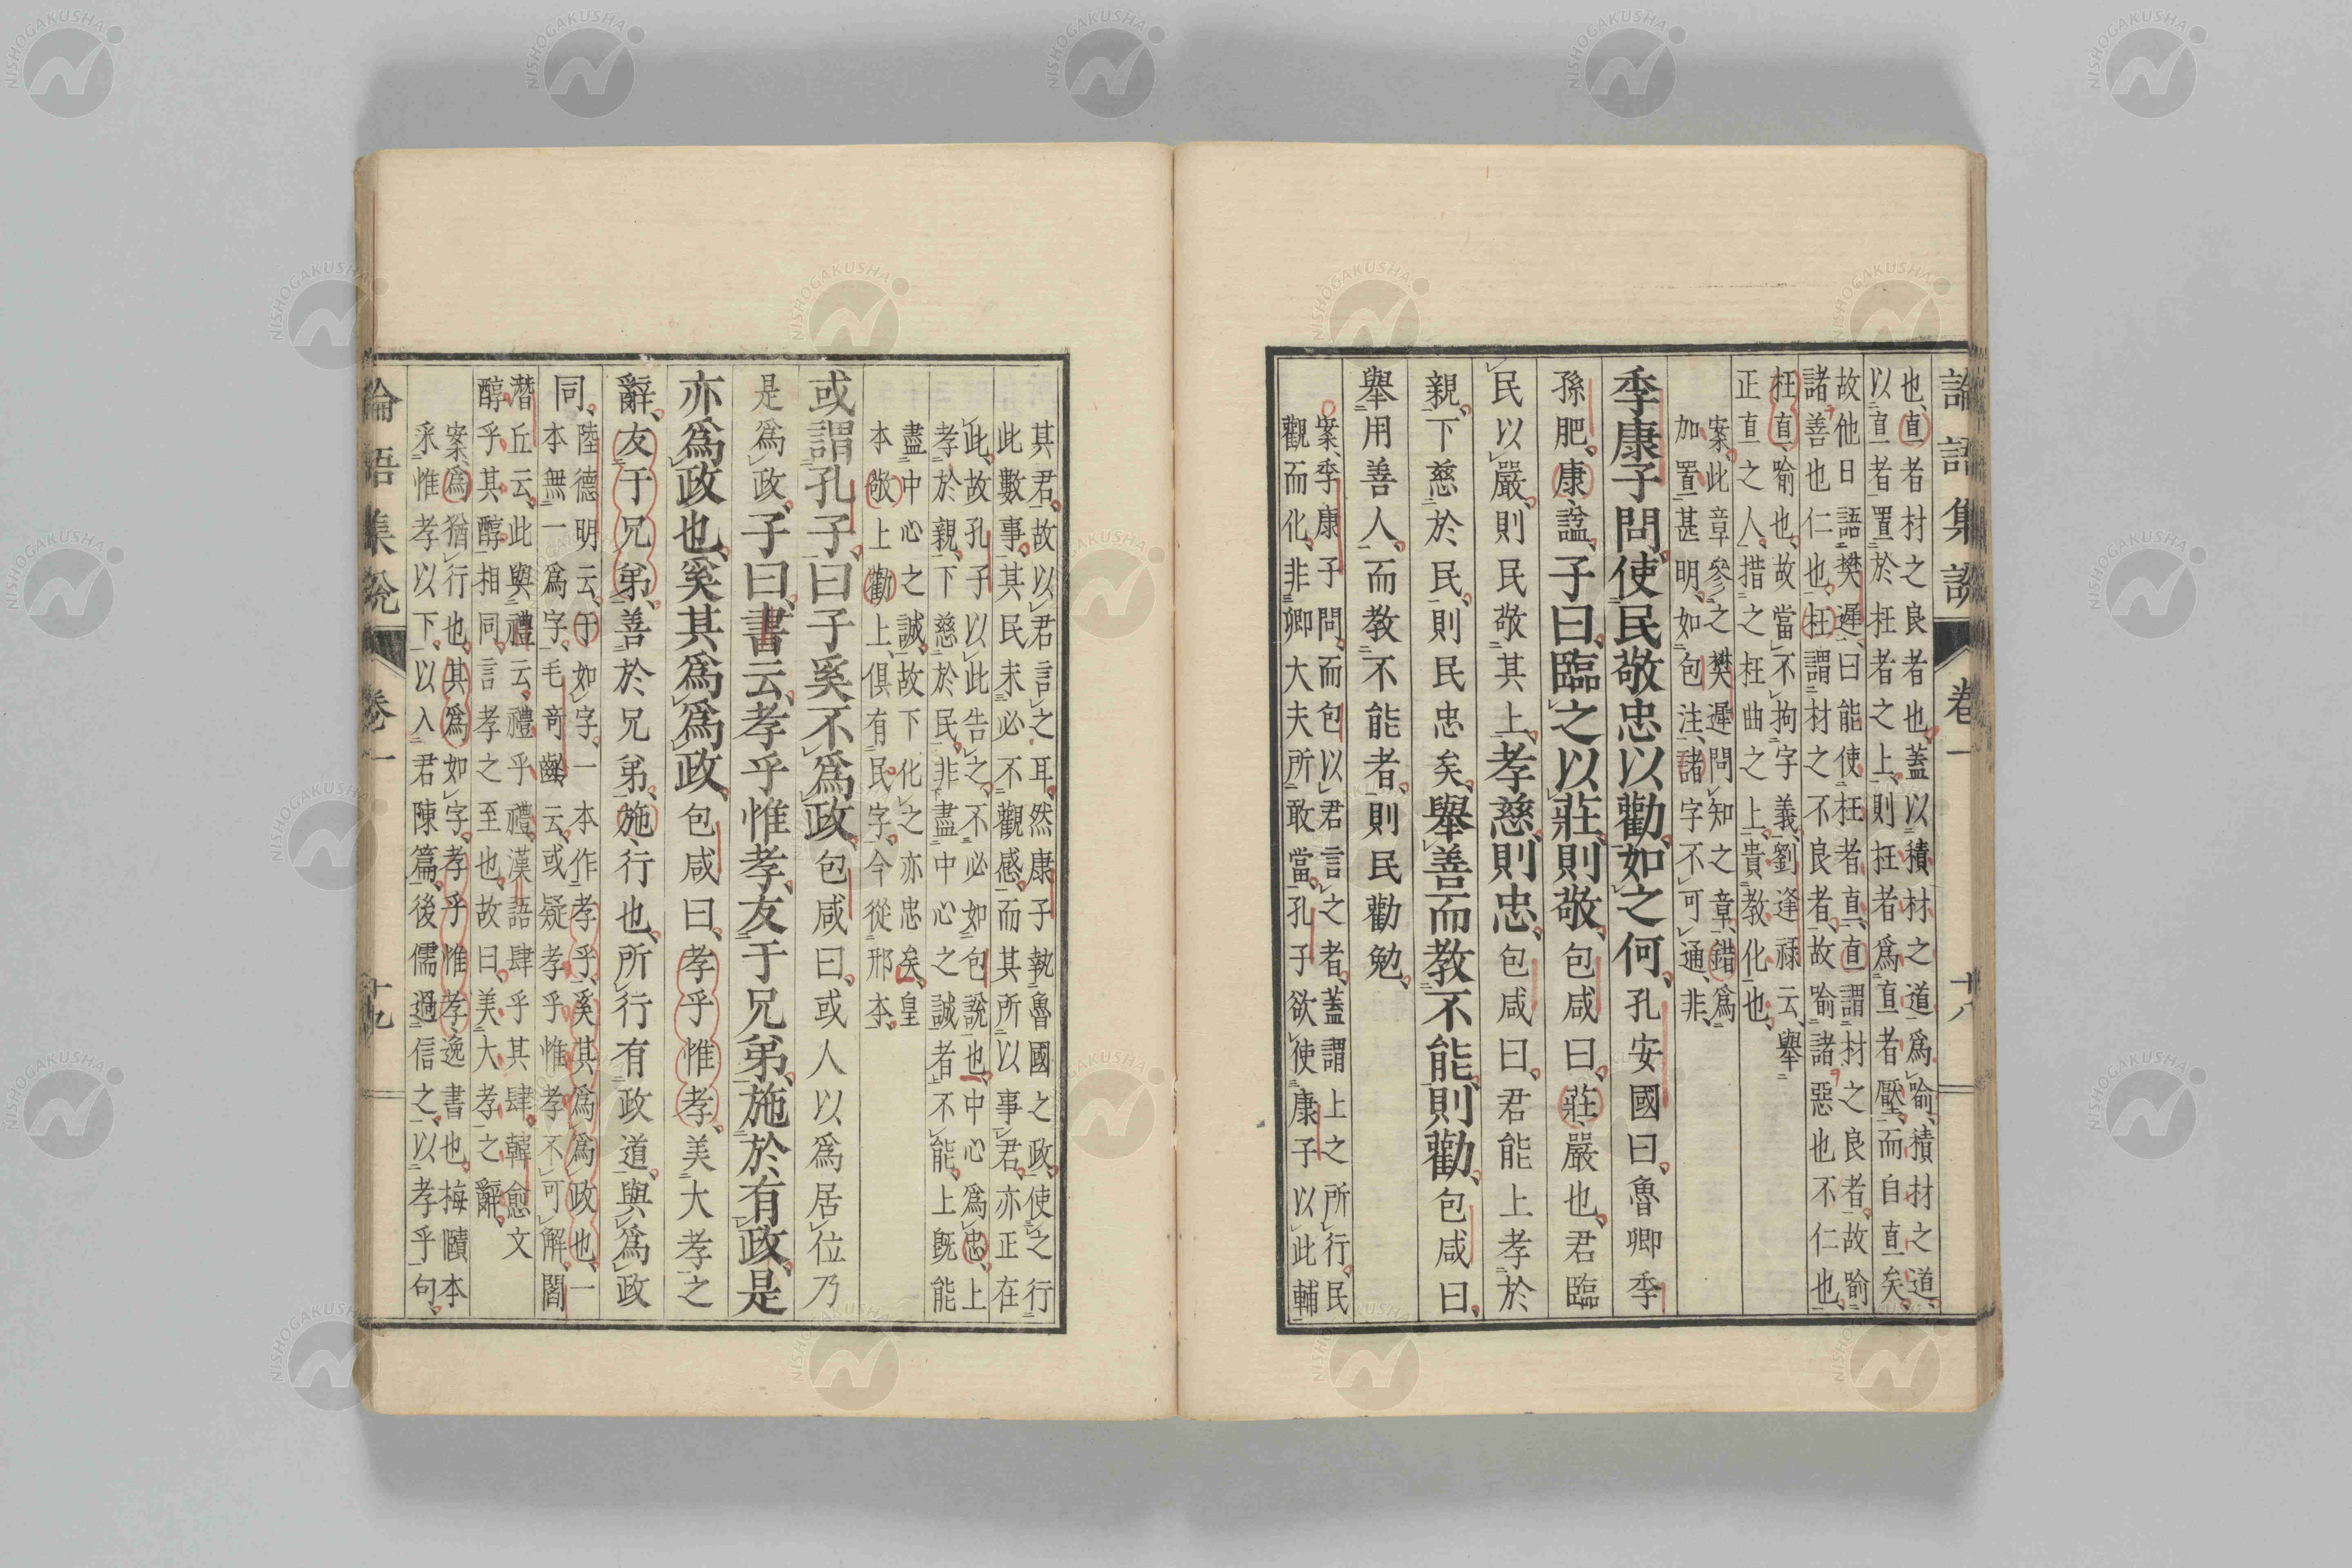 論語集説 卷一 十八
也、直者材之良者也、蓋以積材之道爲喩、積材之道、
以直者置於枉者之上、則枉者爲直者壓、而自直矣、
故他日語樊遲、曰能使枉者直、直謂材之良者、故喩
諸善也仁也、枉謂材之不良者、故喩諸惡也不仁也、
枉直、喩也、故當不拘字義、劉逢祿云、舉
正直之人、措之枉曲之上、貴教化也、
案、此章參之樊遲問知之章、錯爲
加置甚明、如包注、諸字不可通、非、
季康子問、使民敬忠以勸、如之何、孔安國曰、魯卿季
孫肥、康諡、子曰、臨之以莊、則敬、包咸曰、莊嚴也、君臨
民以嚴、則民敬其上、孝慈、則忠、包咸曰、君能上孝於
親、下慈於民、則民忠矣、舉善而教不能、則勸、包咸曰、
舉用善人、而教不能者、則民勸勉、
案、季康子問、而包以君言之者、蓋謂上之所行、民
觀而化、非卿大夫所敢當、孔子欲使康子以此輔
其君、故以君言之耳、然康子執魯國之政、使之行
此數事、其民未必不觀感、而其所以事君、亦正在
此、故孔子以此告之、不必如包說也、中心爲忠、上
孝於親、下慈於民、非盡中心之誠者不能、上旣能
盡中心之誠、故下化之亦忠矣、皇
本敬上勸上、俱有民字、今從邢本、
或謂孔子、曰子奚不爲政、包咸曰、或人以爲居位乃
是爲政、子曰、書云、孝乎惟孝、友于兄弟、施於有政、是
亦爲政也、奚其爲爲政、包咸曰、孝乎惟孝、美大孝之
辭、友于兄弟、善於兄弟、施、行也、所行有政道、與爲政
同、陸德明云、于如字、一本作孝乎、奚其爲爲政也、一
本無一爲字、毛奇齡云、或疑孝乎惟孝不可解、閻
潛丘云、此與禮云、禮乎禮、漢語肆乎其肆、韓愈文
醇乎其醇相同、言孝之至也、故曰、美大孝之辭、
案、爲猶行也、其爲如字、孝乎惟孝、逸書也、梅賾本
采惟孝以下、以入君陳篇、後儒過信之、以孝乎一句、
論語集説 卷一 十九
NISHOGAKUSHA